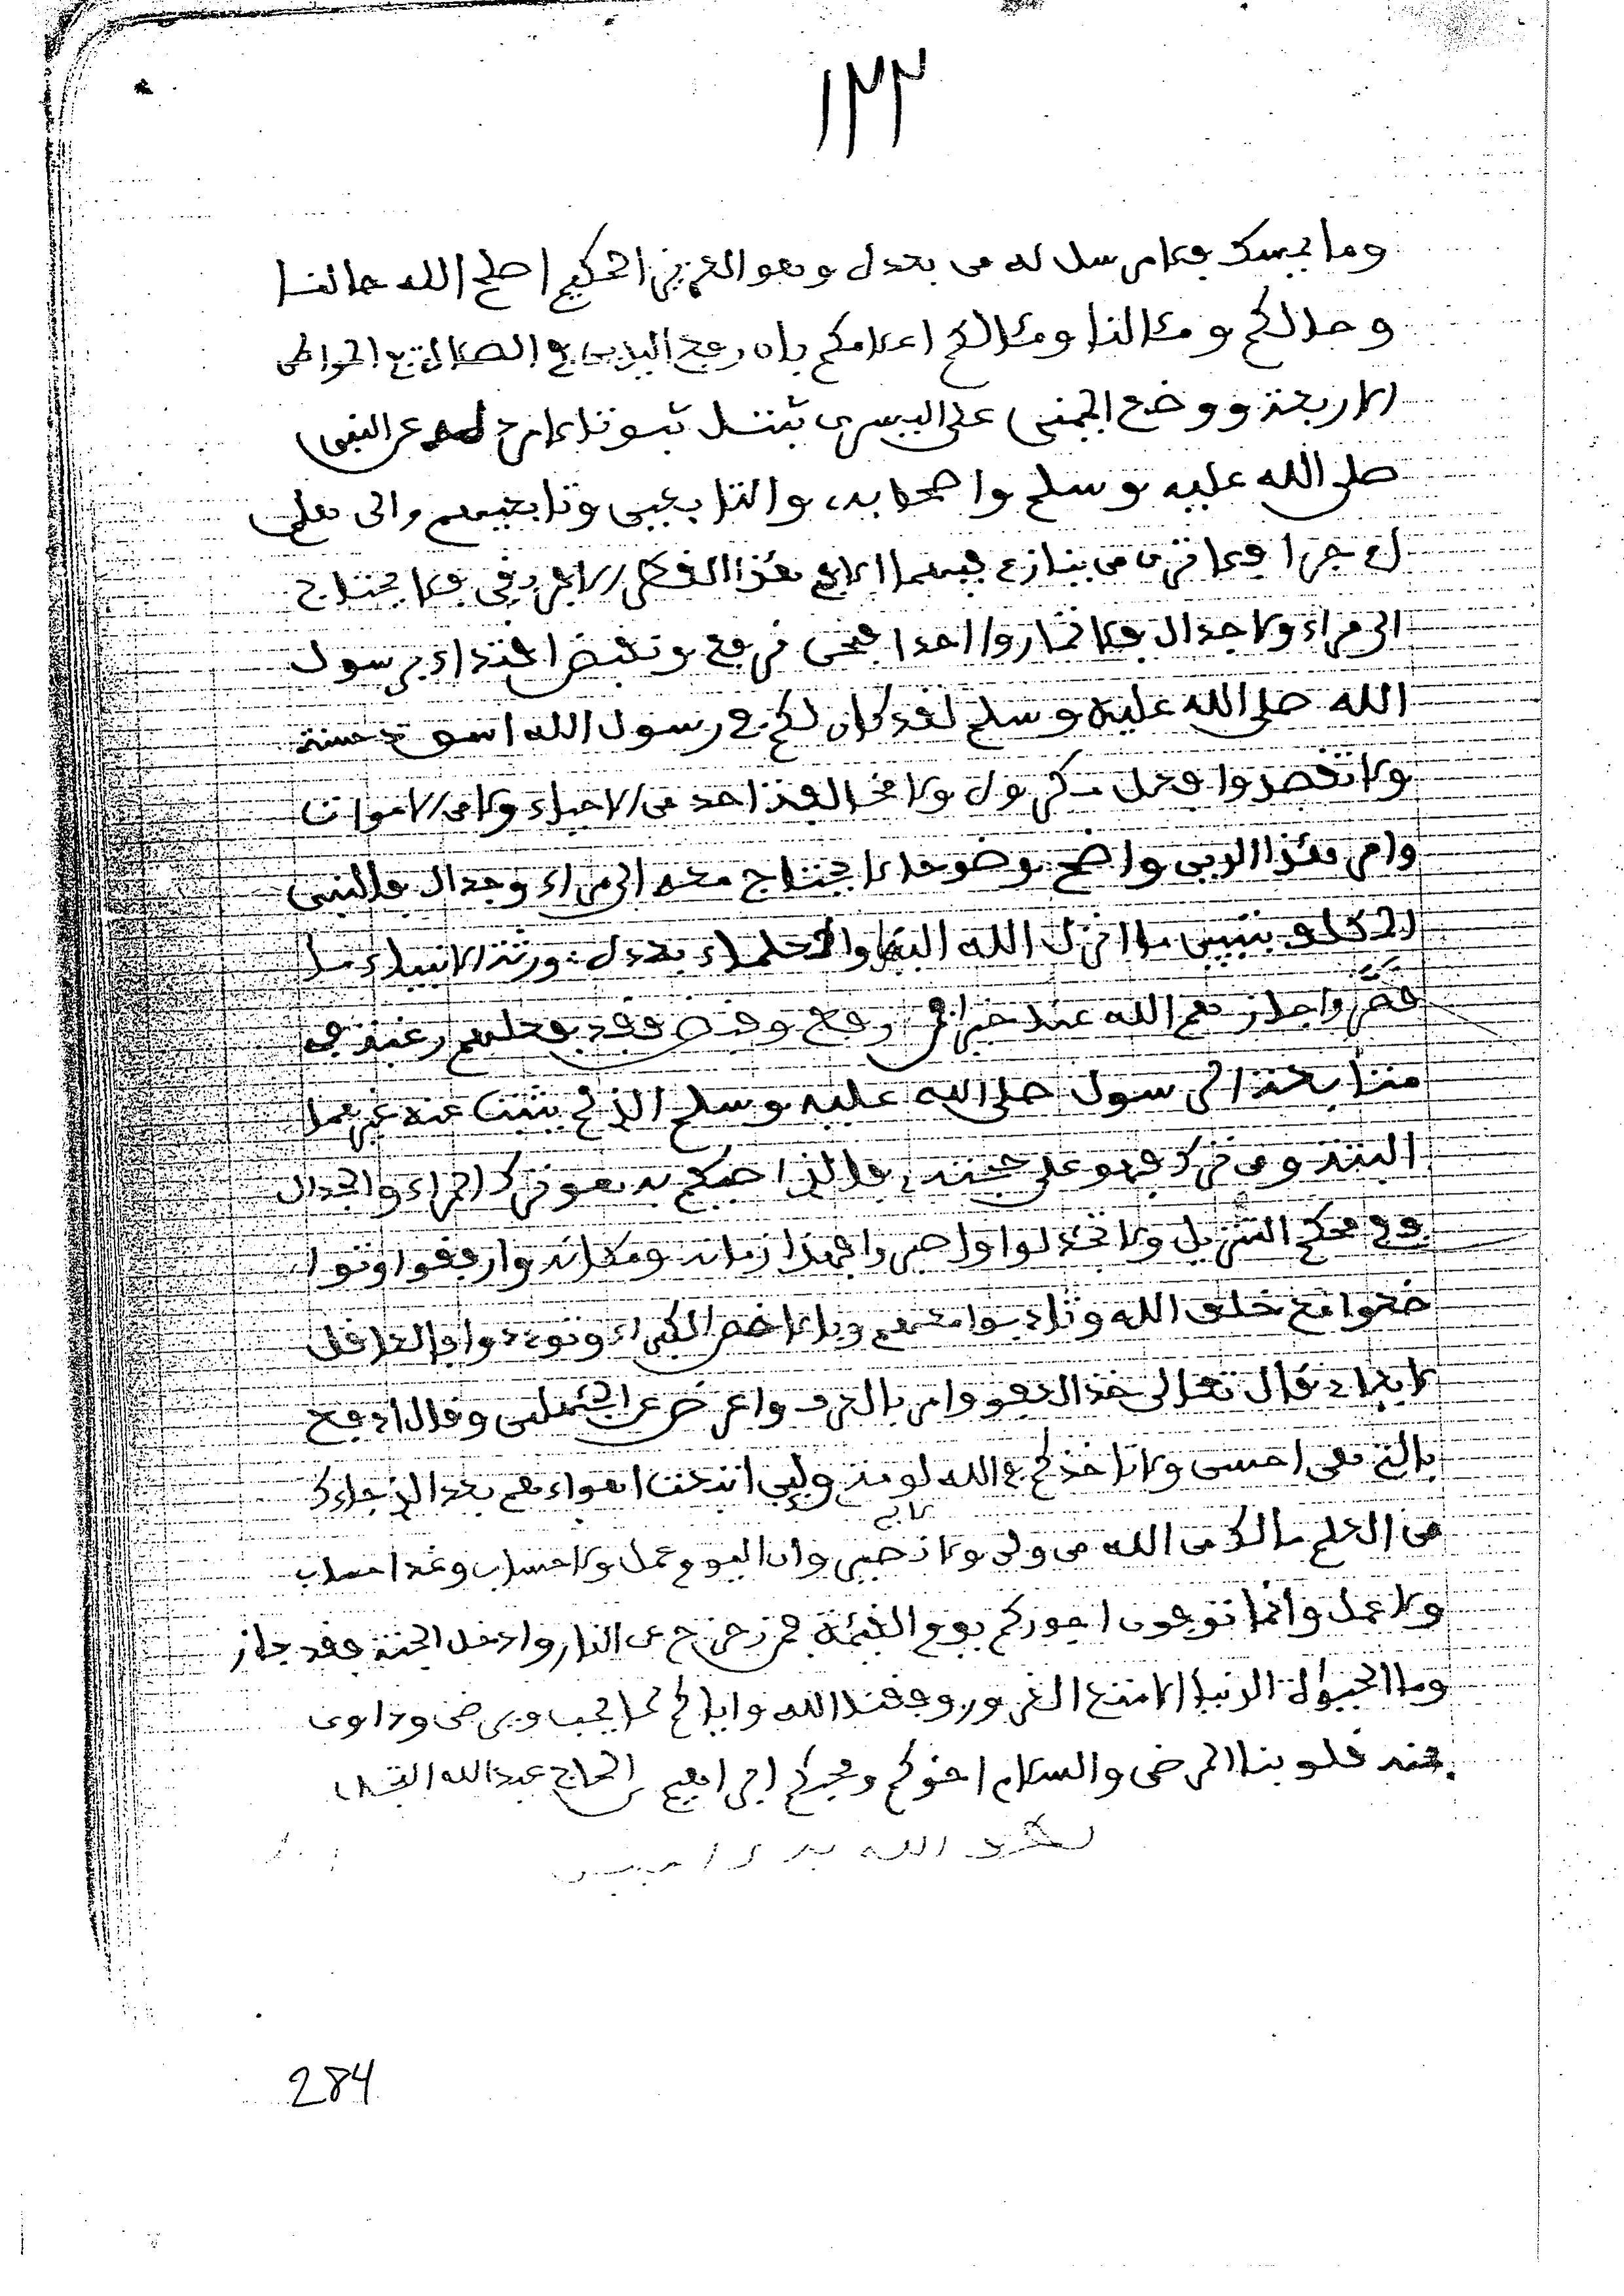 ١٣٣
وما يمسك فلا مرسل له من بعده وهو العزيز الحكيم اصلح الله حالنا
وحالكم ومآلنا ومآلكم اعلامكم بان رفع اليدين في الصلاة في المواطن
الاربعة ووضع اليمنى على اليسرى ثبت ثبوتا لا مرد له عن النبي
صلى الله عليه وسلم واصحابه والتابعين وتابعيهم والى هلم
جرا فلا ترى من ينازع فيهما الا في هذا القطر الافريقي فلا يحتاج
الى مراء ولا جدال فلا تماروا احدا فنحن نرفع ونقبض اقتداء برسول
الله صلى الله عليه وسلم لقد كان لكم في رسول الله اسوة حسنة
ولا تقصدوا مكروه ولا مخالفة احد من الاحياء ولا من الاموات
وامر هذا الدين واضح وضوحا لا يحتاج معه الى مراء وجدال فالنبي
بتبيين ما انزل الله اليه والعلماء بعده ورثة الانبياء ما
قصروا جازهم الله عنا خيرا فمن رفع وقبض فقد رغبة في
متابعة الرسول صلى الله عليه وسلم الذي يثبت عنه غيرهما
البتة ومن ترك فهو على فالذي اصيكم به هو ترك المراء والجدال
وفي محكم التنزيل ولا تجدلوا واصبروا فهذا زمانه ومكانه وارفقوا وتوا
ضعوا مع خلق الله وتادبوا معهم وبالاخص الكبراء وتوددوا فالعاقل
لا يعاد قال تعالى خذ العفو وامر بالعرف واعرض عن الجهلين وقال ادفع
بالتي هي احسن ولا تاخذكم في الله لومة لايم ولين اتبعت اهواءهم بعد الذي جاءك
من العلم مالك من الله من ولي ولا نصير وان اليوم عمل ولا حساب وغدا حساب
ولا عمل وانما توفون اجوركم يوم القيمة فمن زحزح عن النار وادخل الجنة فقد فاز
وما الحيوة الدنيا الا متع الغرور وفقنا الله واياكم لما يحب ويرضى وداوى
بمنه قلوبنا المرضى والسلام اخوكم ومحبكم ابراهيم بن الحاج عبد الله التجاني
284